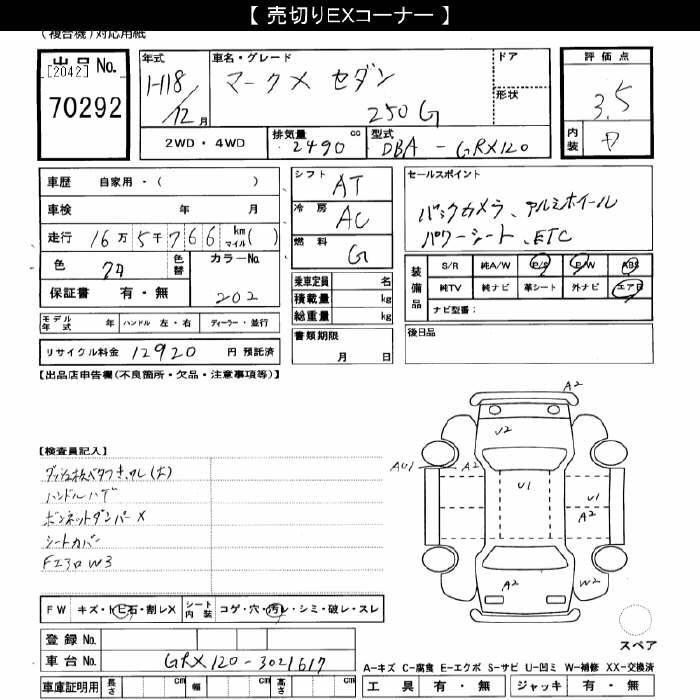 【 売切りEXコーナー 】
(複合機)対応用紙
出品 No.
[2042]
70292
年式
H18/12月
車名・グレード
マークX セダン
250G
ドア
形状
評価点
3.5
内装
2WD・4WD
排気量
2490 cc
型式
DBA - GRX120
車歴 自家用・( )
車検 年 月
走行 16万5千766 km マイル( )
色 クロ
色替
カラーNo.
202
保証書 有・無
モデル年式 年 ハンドル 左・右 ディーラー・並行
リサイクル料金 12920 円 預託済
シフト AT
冷房 AC
燃料 G
乗車定員 名
積載量 kg
総重量 kg
書類期限
月 日
セールスポイント
バックカメラ、アルミホイール
パワーシート、ETC
装備品
S/R 純A/W P/S P/W ABS
純TV 純ナビ 革シート 外ナビ エアB
ナビ型番:
後日品
【出品店申告欄(不良箇所・欠品・注意事項等)】
【検査員記入】
ハンドルハゲ
ボンネットダンパーX
シートカバー
FエアロW3
A2
U2
AU1
A2
U1
U1
A2
A2
W2
FW キズ・トビ石・割レX
シート内装 コゲ・穴・汚レ・シミ・破レ・スレ
登録 No.
車台 No. GRX120-3021617
車庫証明用 長さ cm 幅 cm 高さ cm
スペア
A-キズ C-腐食 E-エクボ S-サビ U-凹ミ W-補修 XX-交換済
工具 有・無 ジャッキ 有・無